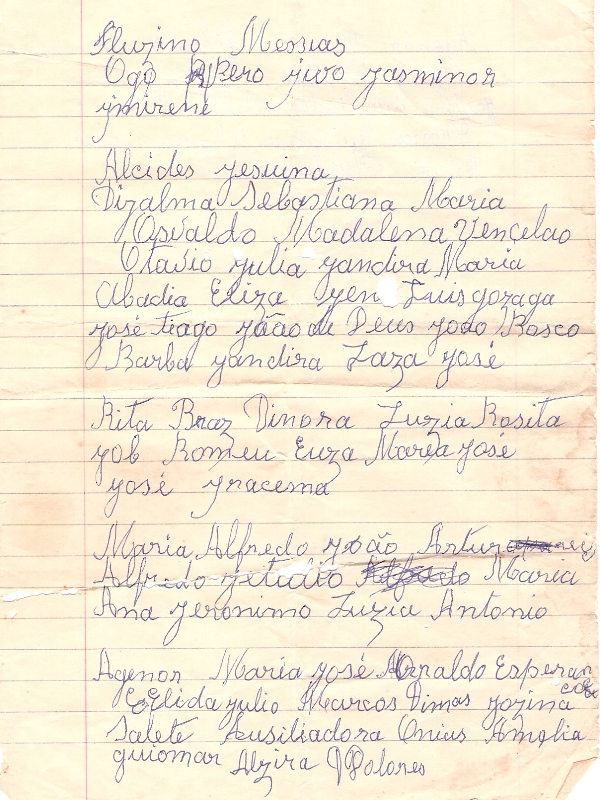 Messias
yasminor
ymirene
Alcides yesuina
Dizalma Sebastiana Maria
Osvaldo Madalena Vencelao
Otavio yulia yandira Maria
Abadia Eliza yen Luis gozaga
yosé tiago yoão de Deus yoao Bosco
Barba yandira Zaza yosé
Rita Braz Dinora Luzia Rosita
yob Romeu Euza Maria yosé
yosé yracema
Maria Alfredo yoão Artur
Alfredo Maria
Ana yeronimo Luzia Antonio
Agenor Maria yosé Arnaldo Esperan
Elida yulio Marcos Dimas yozina
Salete Ausiliadora Onias Amelia
guiomar Alzira Dolores